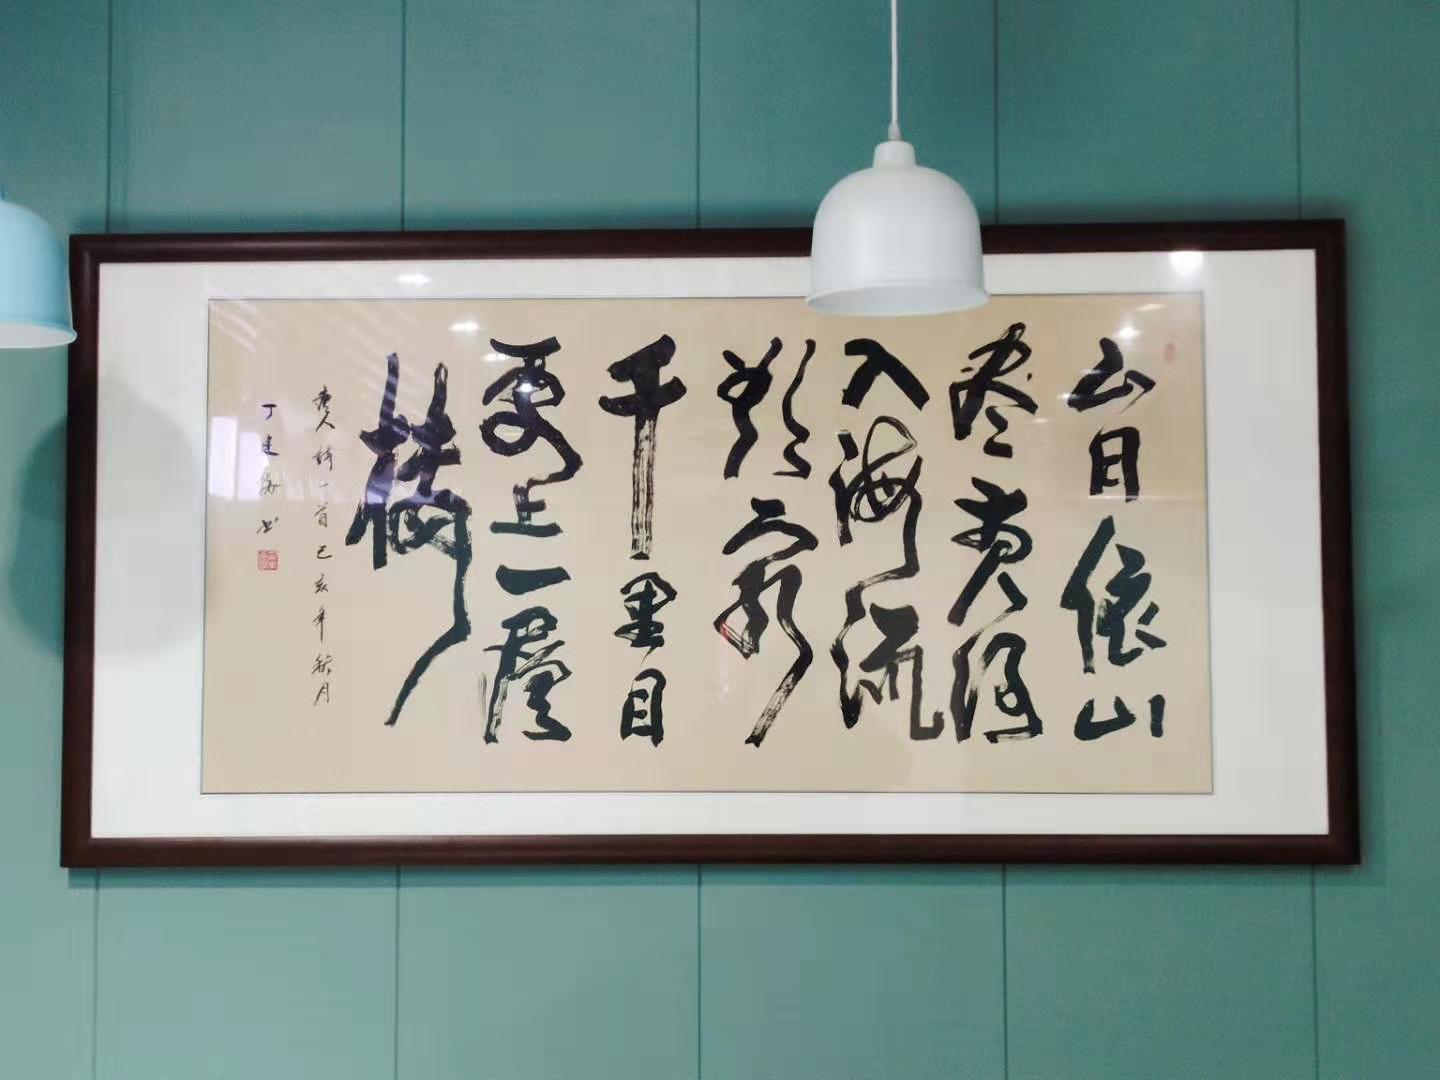 白日依山
尽黄河
入海流
欲穷
千里目
更上一層
樓
唐人诗一首己亥年秋月
丁建书